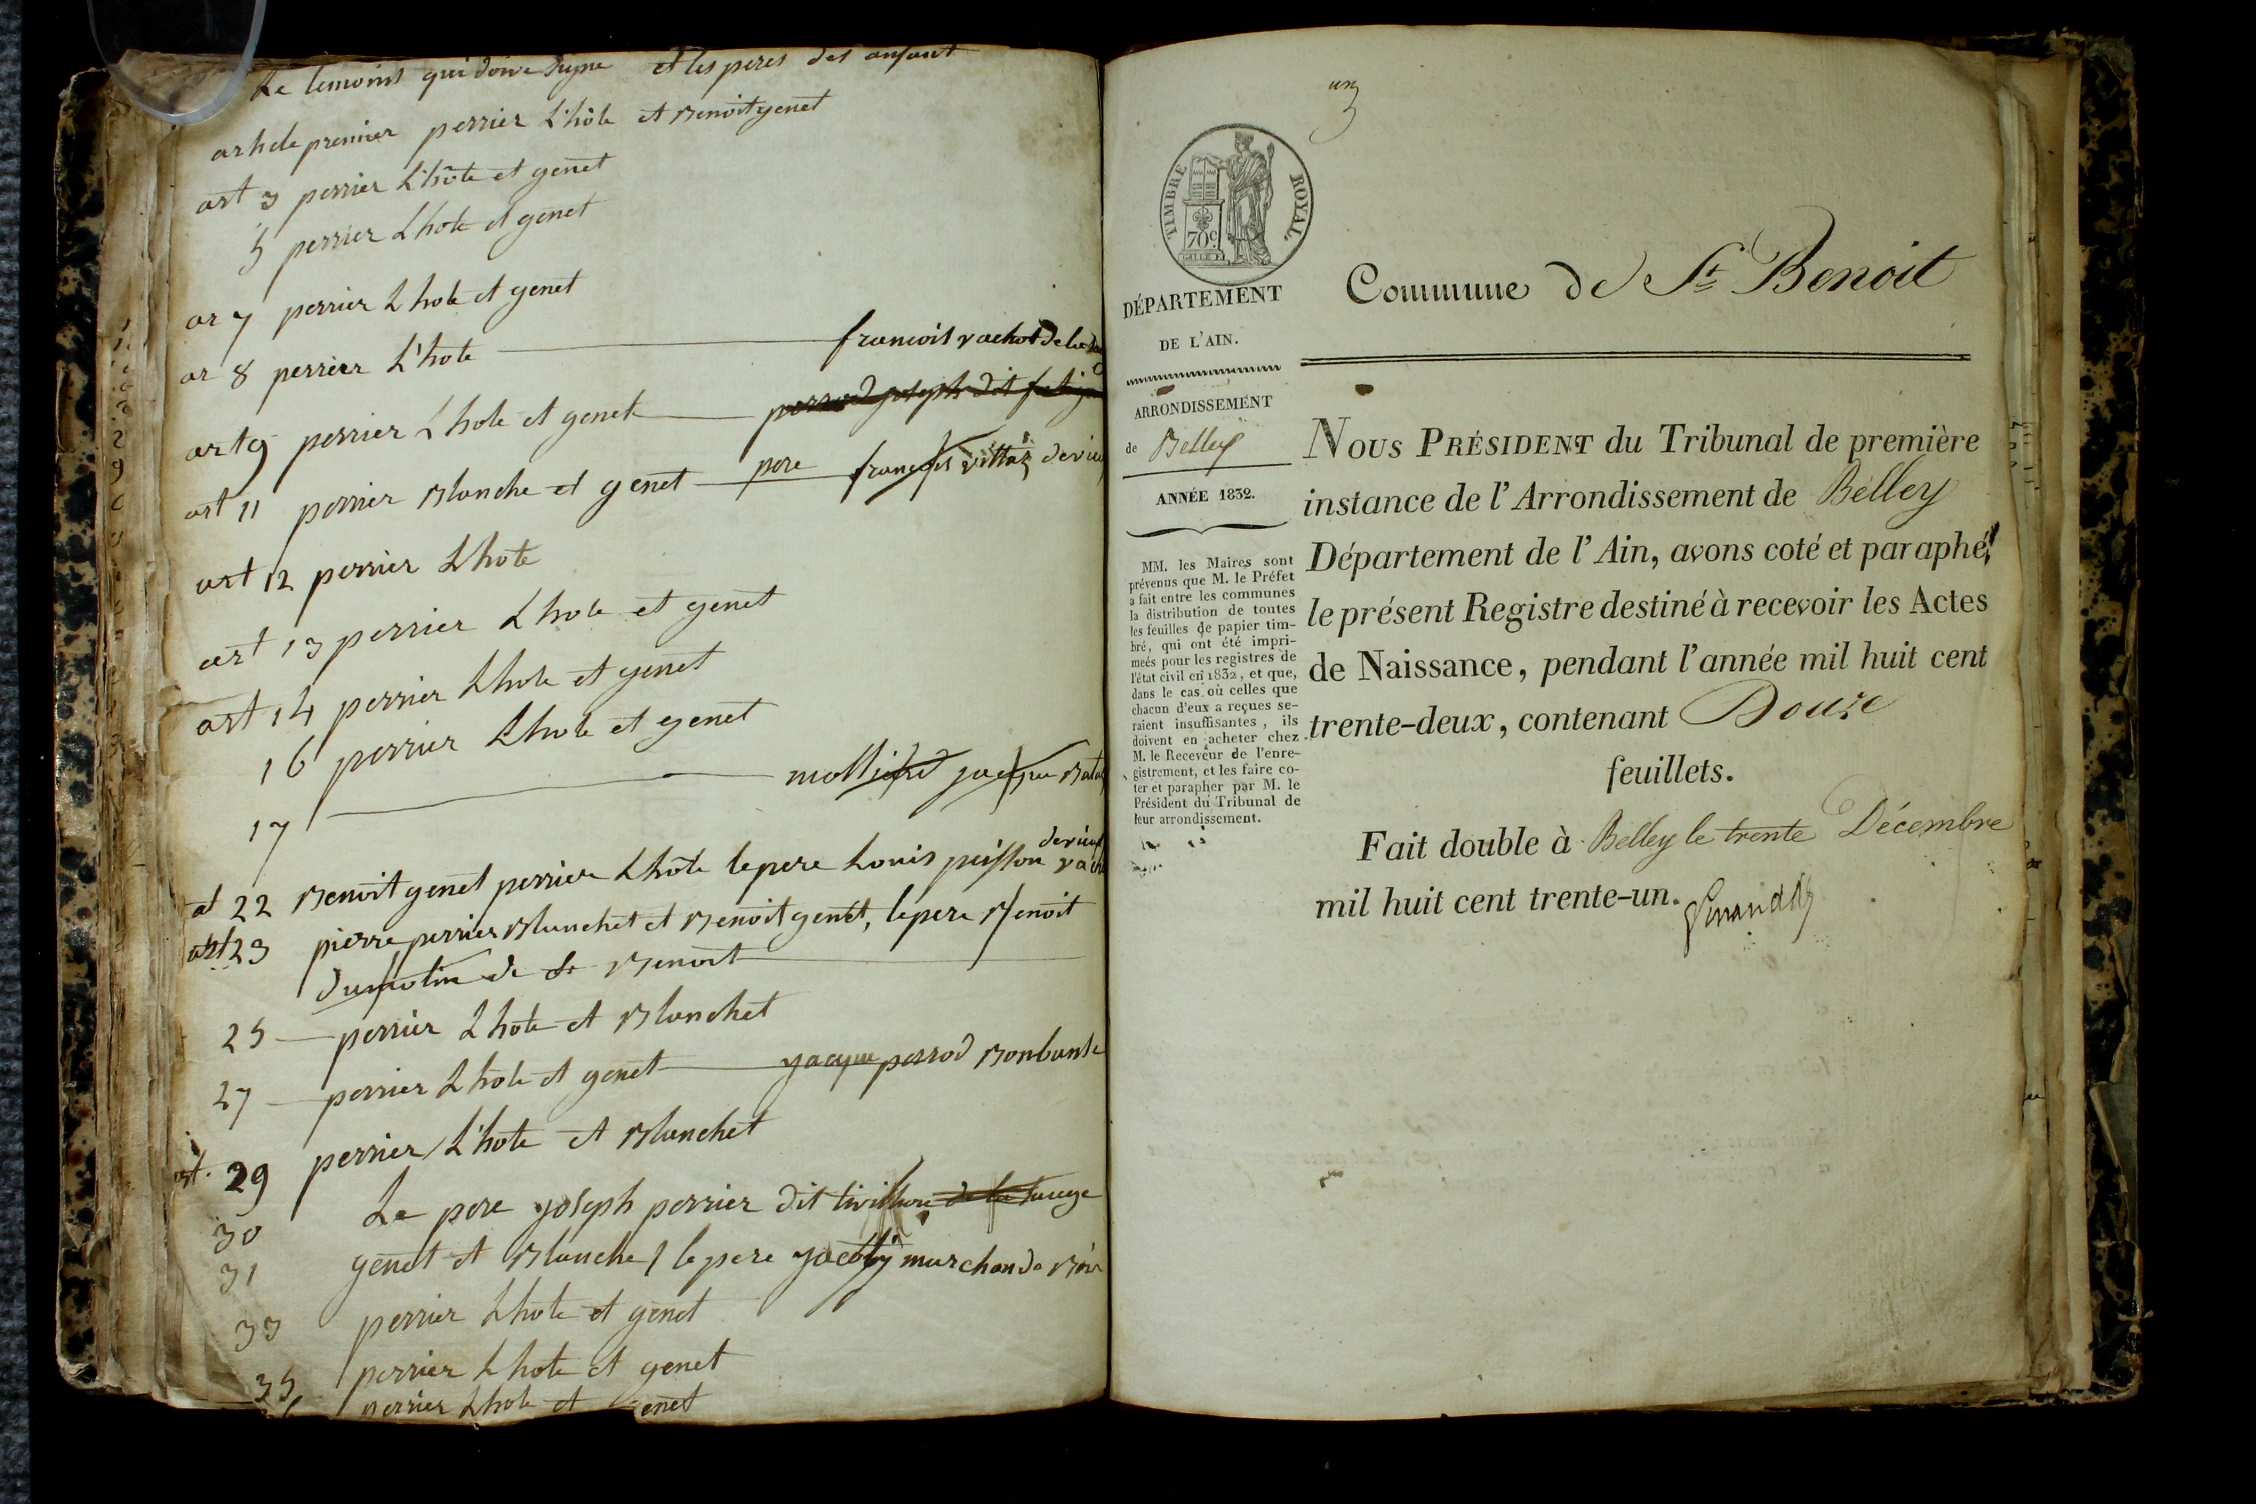 Le temoins qui doive signe et les peres des anfant
article premier perrier L'hôte et Benoit genet
art 3 perrier L'hôte et genet
5 perrier Lhote et genet
ar 7 perrier Lhote et genet
ar 8 perrier L'hote francois vachot de la
art 9 perrier Lhote et genet perrod joseph dit
art 11 perrier Blanche et genet pere francois
art 12 perrier Lhote
art 13 perrier Lhote et genet
art 14 perrier Lhote et genet
16 perrier Lhote et genet
17 jacque
at 22 Benoit genet perrier Lhôte le pere Louis
art 23 pierre perrier Blanchet et Benoit genet, le pere Benoit
dumolin de st Benoit
25 perrier Lhote et Blanchet
27 perrier Lhote et genet jacque perrod
art. 29 perrier L'hote et Blanchet
30 Le pere joseph perrier dit
31 genet et Blanche / le pere marchand
33 perrier Lhote et genet
35 perrier Lhote et genet
perrier Lhote et genet
un
TIMBRE ROYAL
70 c.
DÉPARTEMENT
DE L'AIN.
ARRONDISSEMENT
de Belley
ANNÉE 1832.
MM. les Maires sont
prévenus que M. le Préfet
a fait entre les communes
la distribution de toutes
les feuilles de papier tim-
bré, qui ont été impri-
meés pour les registres de
l'état civil en 1832, et que,
dans le cas où celles que
chacun d'eux a reçues se-
raient insuffisantes, ils
doivent en acheter chez
M. le Receveur de l'enre-
gistrement, et les faire co-
ter et parapher par M. le
Président du Tribunal de
leur arrondissement.
Commune de St Benoit
NOUS PRÉSIDENT du Tribunal de première
instance de l'Arrondissement de Belley
Département de l'Ain, avons coté et paraphé,
le présent Registre destiné à recevoir les Actes
de Naissance, pendant l'année mil huit cent
trente-deux, contenant Douze
feuillets.
Fait double à Belley le trente Décembre
mil huit cent trente-un.